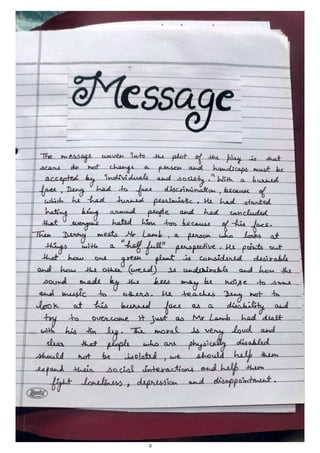 Message
The message woven into the plot of the play is that
scars do not change a person and handicaps must be
accepted by individuals and society." With a burned
face, Derry had to face discrimination, because of
which he had turned pessimistic. He had started
hating being around people and had concluded
that everyone hated him too because of his face.
Then Derry meets Mr Lamb, a person who looks at
things with a "half full" perspective. He points out
that how one green plant is considered desirable
and how the other (weed) is undesirable and how the
sound made by the bees may be noise to some
and music to others. He teaches Derry not to
look at his burned face as a disability and
try to overcome it just as Mr Lamb had dealt
with his tin leg. The moral is very loud and
clear that people who are physically disabled
should not be isolated, we should help them
expand their social interactions and help them
fight loneliness, depression and disappointment.
9